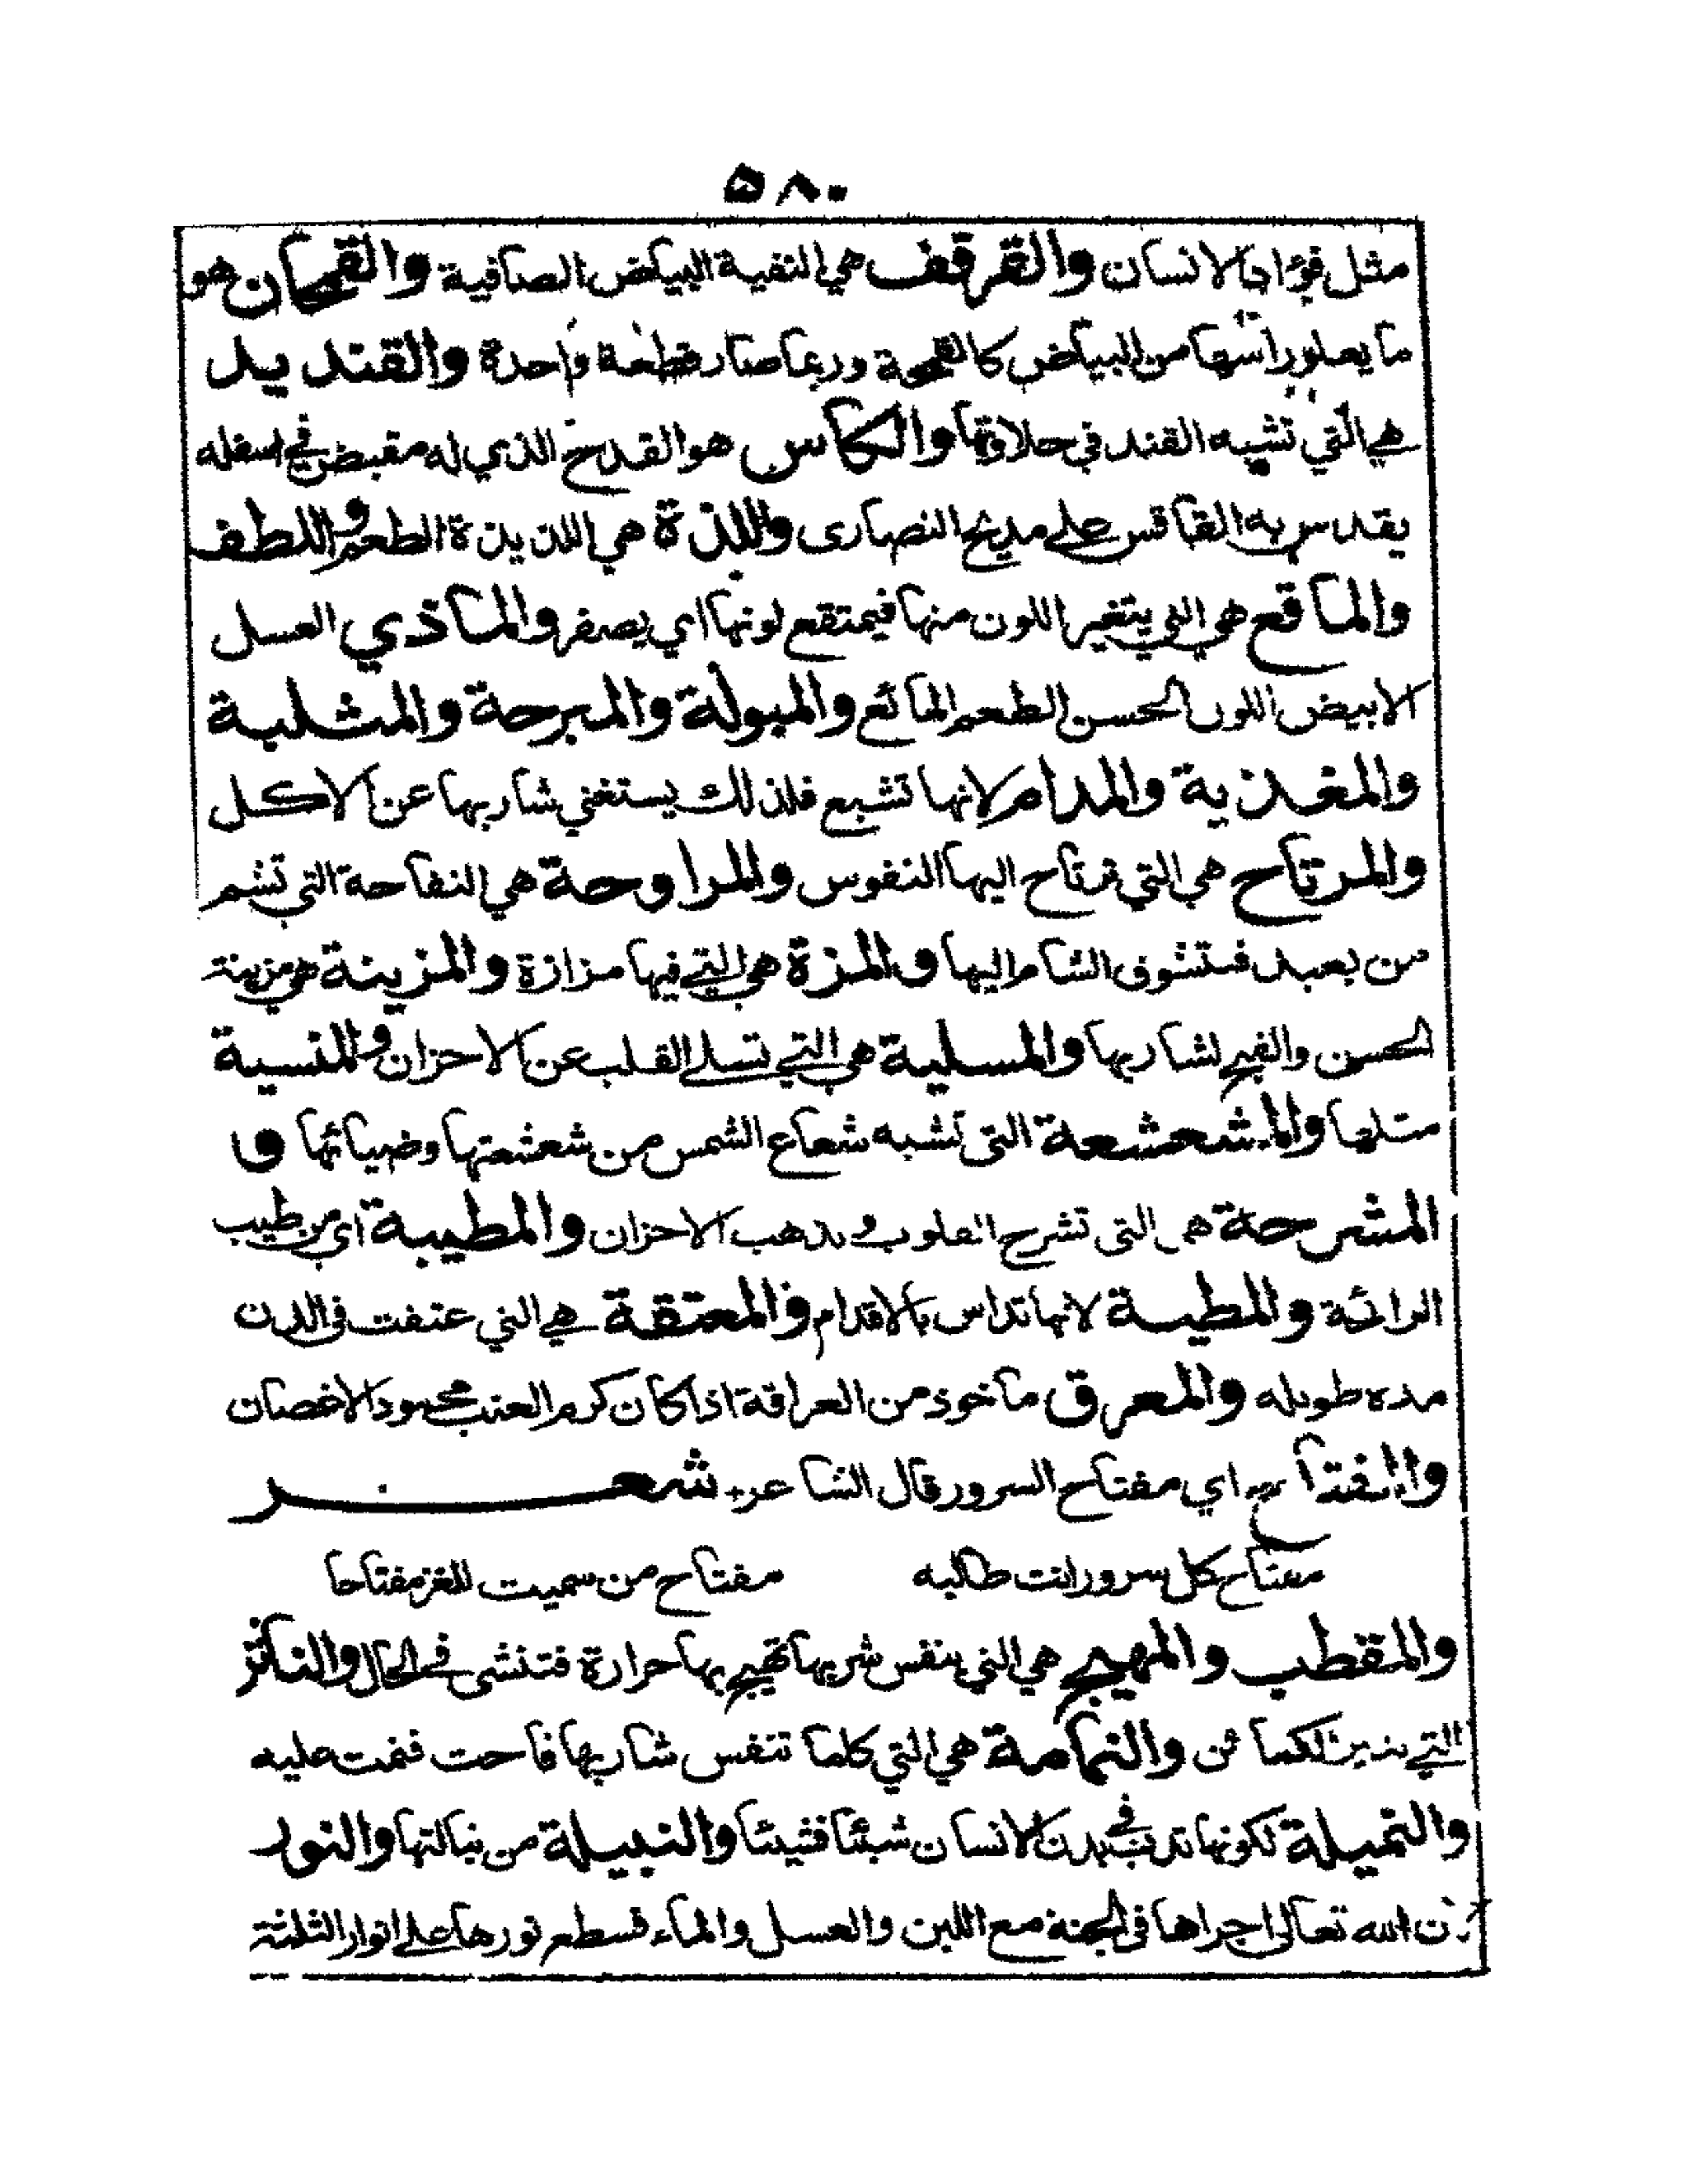 ٥٨٠
مثل فؤاد الانسان والقرقف هي النقية البياض الصافية والقمحان هو
ما يعلو راسها من البياض كالقمحة وربما صار قطعة واحدة والقنديل
هي التي تشبه القند في حلاوتها والكاس هو القدح الذي له مقبض في اسفله
يقدس به القاقس على مديح النصارى واللذة هي اللذيذة الطعم واللطف
والماقع هي التي يتغير اللون منها فيمتقع لونها اي يصفر والماذي العسل
الابيض اللون الحسن الطعم المائع والمبولة والمبرحة والمثلبة
والمغذية والمدام لانها تشبع فلذلك يستغني شاربها عن الاكل
والمرتاح هي التي ترتاح اليها النفوس والمراوحة هي النفاحة التي تشم
من بعيد فتشوق الشام اليها والمزة هي التي فيها مزازة والمزينة هي مزينة
الحسن والقبح لشاربها والمسلية هي التي تسلي القلب عن الاحزان والمنسية
مثلها والمشعشعة التي تشبه شعاع الشمس من شعشعتها وضيائها و
المشرحة هي التي تشرح القلوب وتذهب الاحزان والمطيبة اي من طيب
الرائحة والمطيسة لانها تداس بالاقدام والمعتقة هي التي عتقت في الدن
مدة طويلة والمعرق ماخوذ من العراقة اذا كان كرم العنب محمود الاغصان
والمفتاح اي مفتاح السرور قال الشاعر شعر
مفتاح كل سرور انت طالبه مفتاح من سميت للغز مفتاحا
والمقطب والمهيج هي التي بنفس شربها تهيج بها حرارة فتنشي في الحال والناقز
التي والنمامة هي التي كلما تنفس شاربها فاحت فنمت عليه
والنميلة لكونها تدب في بدن الانسان شيئا فشيئا والنبيلة من نبالتها والنور
لان الله تعالى اجراها في الجنة مع اللبن والعسل والماء فسطع نورها على انوار الثلثة